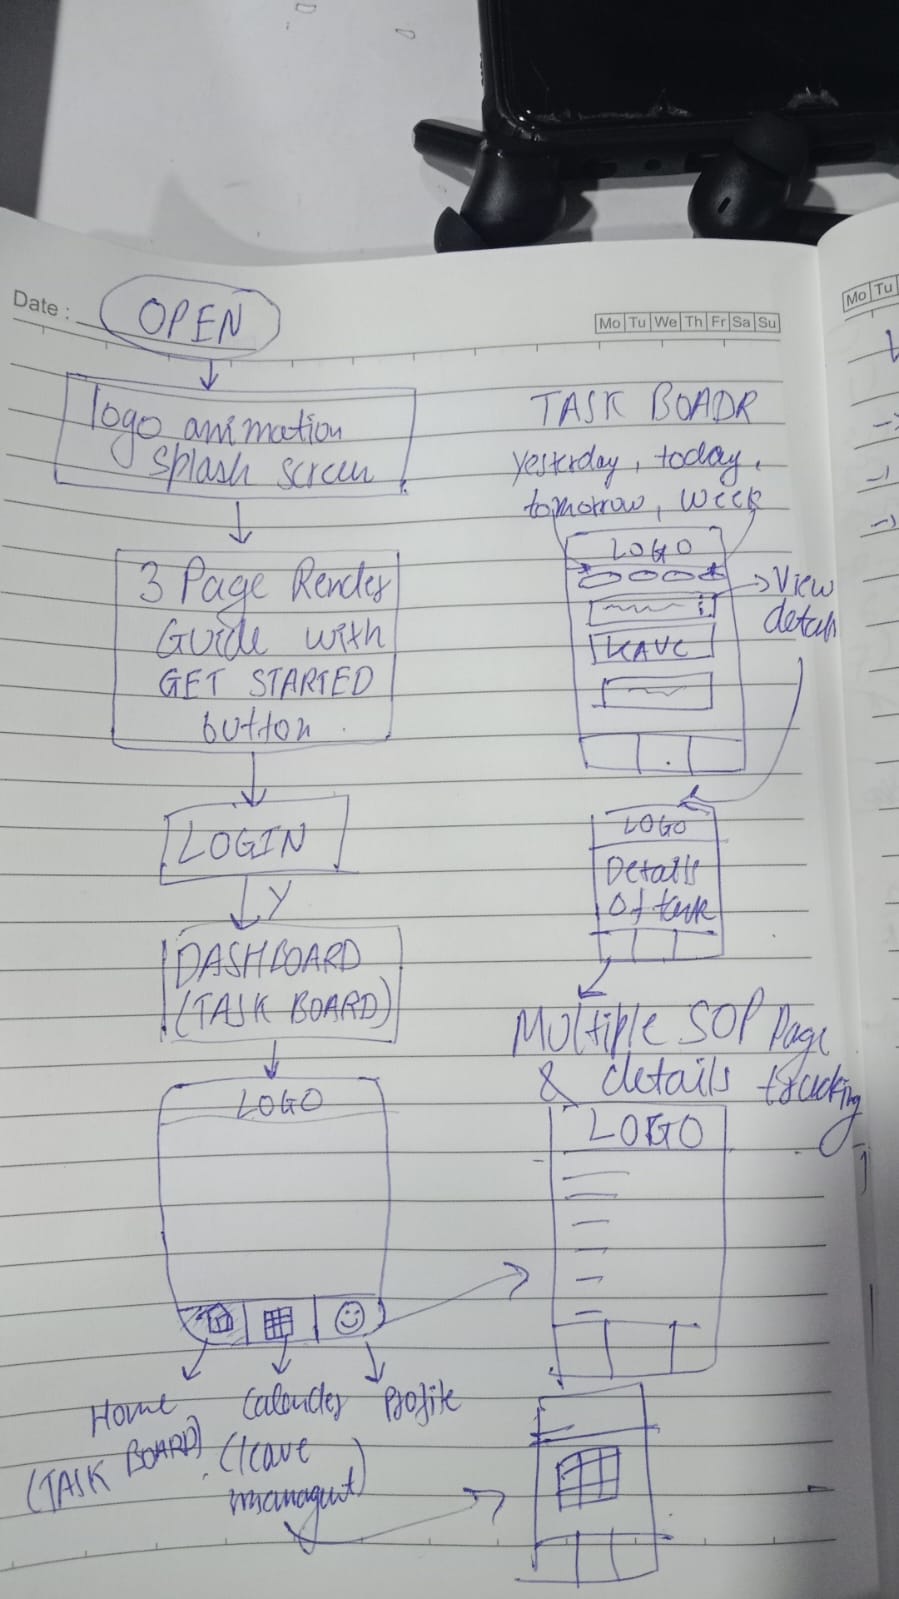 Date :
OPEN
Mo Tu We Th Fr Sa Su
Mo Tu
logo animation
splash screen
3 Page Render
Guide with
GET STARTED
button
LOGIN
Y
DASHBOARD
(TASK BOARD)
LOGO
Home
(TASK BOARD)
Calender
(leave
Profile
TASK BOADR
yesterday, today,
tomorrow, week
LOGO
View
LEAVE
LOGO
Details
Of task
Multiple SOP Page
& details tracking
LOGO